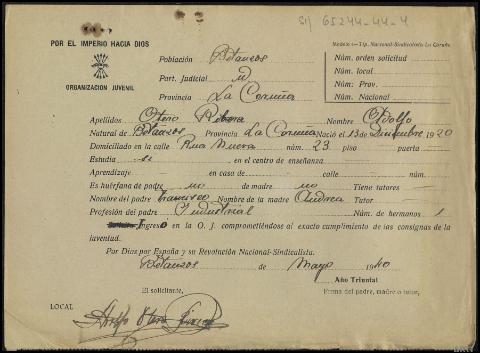 SI 65244-44-4
POR EL IMPERIO HACIA DIOS
ORGANIZACIÓN JUVENIL
Modelo 1—Tip. Nacional-Sindicalista La Coruña
Población Betanzos
Part. Judicial id
Provincia La Coruña
Núm. orden solicitud
Núm. local
Núm. Prov.
Núm. Nacional
Apellidos Otero Nombre Adolfo
Natural de Betanzos Provincia La Coruña Nació el 13 Diciembre 1920
Domiciliado en la calle Rua Nueva núm. 23 piso puerta
Estudia si en el centro de enseñanza
Aprendizaje en casa de calle núm.
Es huérfana de padre no de madre no Tiene tutores
Nombre del padre Francisco Nombre de la madre Andrea Tutor
Profesión del padre Industrial Núm. de hermanos 1
Ingreso en la O. J. comprometiéndose al exacto cumplimiento de las consignas de la
juventud.
Por Dios por España y su Revolución Nacional-Sindicalista.
Betanzos de Mayo 1940
Año Triunfal
El solicitante, Firma del padre, madre o tutor,
LOCAL
Adolfo Otero